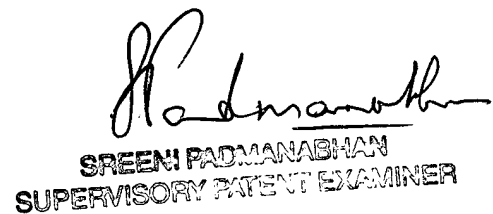 SPadmanabhan
SREENI PADMANABHAN
SUPERVISORY PATENT EXAMINER